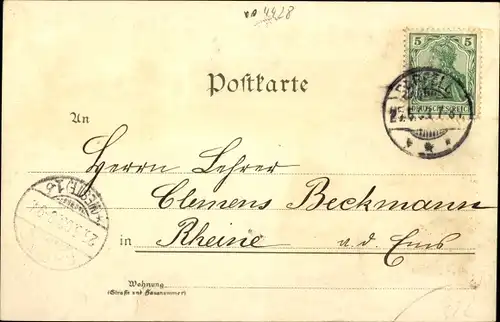 4428
5
Postkarte
DEUTSCHES REICH
An
Herrn Lehrer
Clemens Beckmann
in Rheine a. d. Ems
Wohnung
(Straße und Hausnummer)